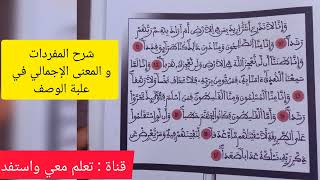 وَإِنَّا لَا نَدْرِي أَشَرٌّ أُرِيدَ بِمَن فِي الْأَرْضِ أَمْ أَرَادَ بِهِمْ رَبُّهُمْ
رَشَدًا وَإِنَّا مِنَّا الصَّالِحُونَ وَمِنَّا دُونَ ذَلِكَ كُنَّا طَرَائِقَ قِدَدًا
وَإِنَّا ظَنَنَّا أَن لَّن نُّعْجِزَ اللَّهَ فِي الْأَرْضِ وَلَن نُّعْجِزَهُ هَرَبًا وَإِنَّا لَمَّا
سَمِعْنَا الْهُدَى ءَامَنَّا بِهِ فَمَن يُومِن بِرَبِّهِ فَلَا يَخَافُ بَخْسًا وَلَا رَهَقًا
وَإِنَّا مِنَّا الْمُسْلِمُونَ وَمِنَّا الْقَاسِطُونَ فَمَنْ أَسْلَمَ فَأُولَئِكَ تَحَرَّوْا رَشَدًا
وَأَمَّا الْقَاسِطُونَ فَكَانُوا لِجَهَنَّمَ حَطَبًا وَأَن لَّوِ اسْتَقَامُوا
عَلَى الطَّرِيقَةِ لَأَسْقَيْنَاهُم مَّاءً غَدَقًا لِّنَفْتِنَهُمْ فِيهِ وَمَن يُعْرِضْ عَن
ذِكْرِ رَبِّهِ نَسْلُكْهُ عَذَابًا صَعَدًا
شرح المفردات
و المعنى الإجمالي في
علبة الوصف
قناة : تعلم معي واستفد